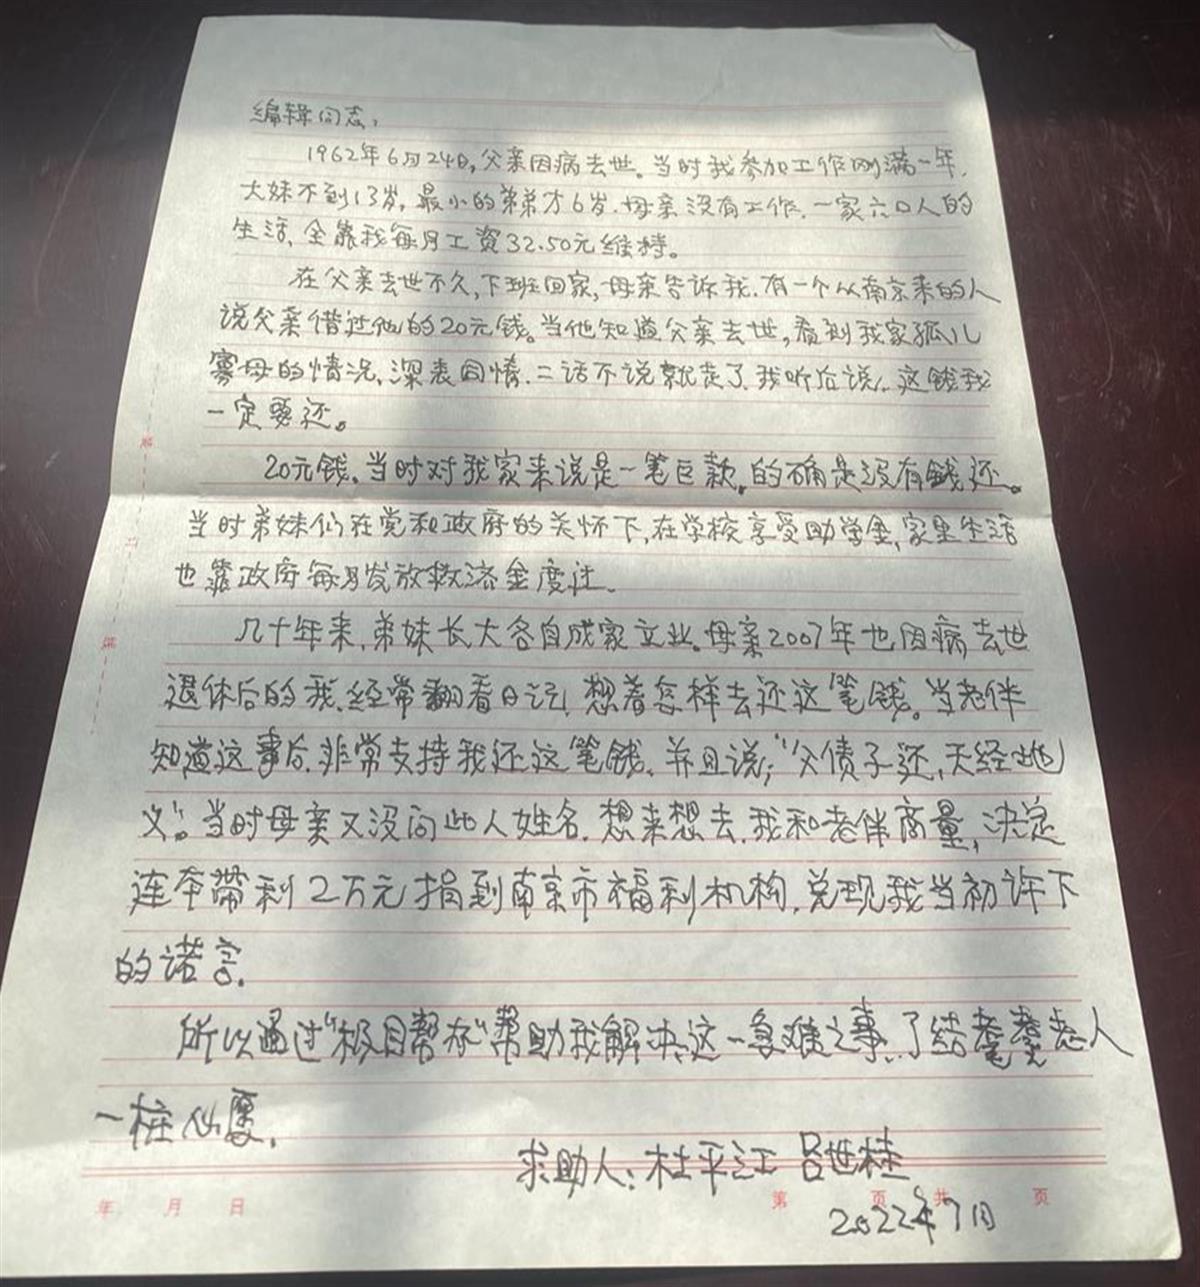 编辑同志:
1962年6月24日,父亲因病去世。当时我参加工作刚满一年,
大妹不到13岁,最小的弟弟才6岁.母亲没有工作.一家六口人的
生活,全靠我每月工资32.50元维持。
在父亲去世不久,下班回家,母亲告诉我.有一个从南京来的人
说父亲借过他的20元钱。当他知道父亲去世,看到我家孤儿
寡母的情况,深表同情.二话不说就走了.我听后说:这钱我
一定要还。
20元钱.当时对我家来说是一笔巨款.的确是没有钱还。
当时弟妹们在党和政府的关怀下,在学校享受助学金,家里生活
也靠政府每月发放救济金度过.
几十年来,弟妹长大各自成家立业。母亲2007年也因病去世
退休后的我.经常翻看日记,想着怎样去还这笔钱。当老伴
知道这事后.非常支持我还这笔钱.并且说:“父债子还,天经地
义”。当时母亲又没问此人姓名.想来想去.我和老伴商量,决定
连本带利2万元捐到南京市福利机构,兑现我当初许下
的诺言.
所以通过“极目帮办”帮助我解决这一急难之事.了结耄耋老人
一桩心愿.
求助人:杜平江 吕世桂
2022年7月
第 页 共 页
年 月 日